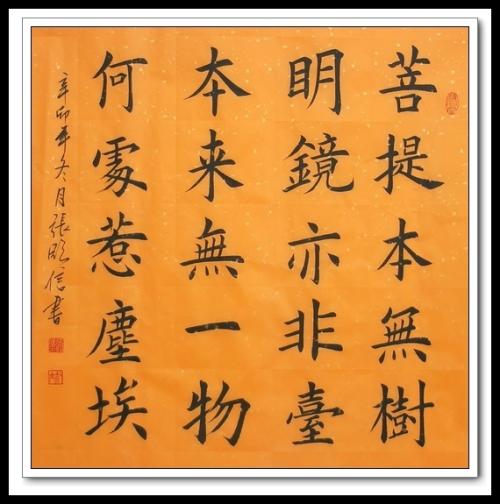 菩提本無樹
眀鏡亦非臺
本来無一物
何處惹塵埃
辛卯年冬月張信書